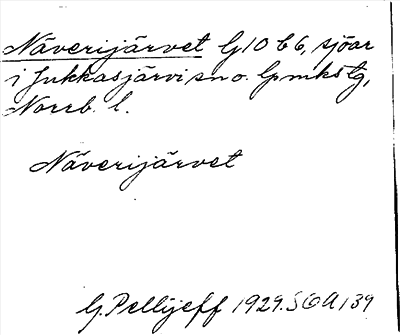 Näverijärvet G10 b6, sjöar
i Jukkasjärvi sn o. lpmkstg,
Norrb. l.
Näverijärvet
G. Pellijeff 1929. SOA 139